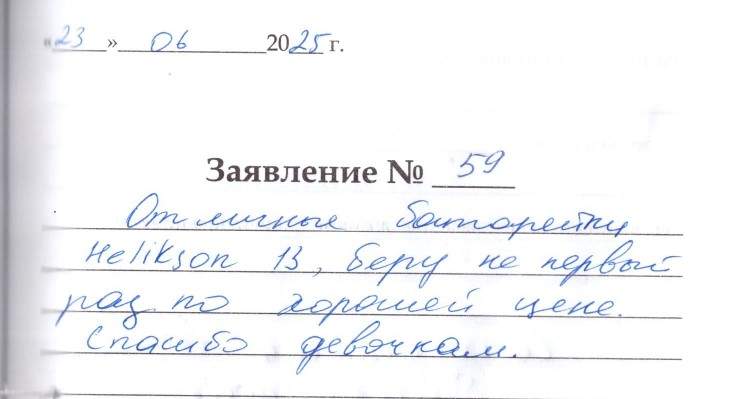 «23» 06 2025 г.
Заявление № 59
Отличные батарейки
Helikson 13, беру не первый
раз по хорошей цене.
Спасибо девочкам.